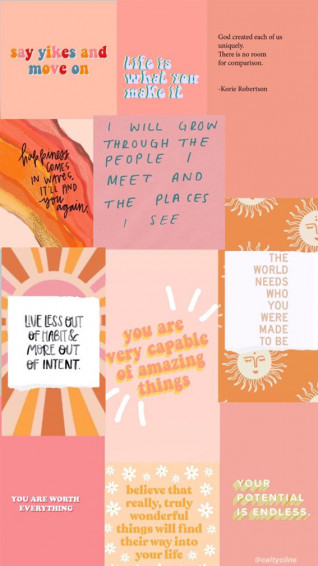 say yikes and
move on
life is
what you
make it
God created each of us
uniquely.
There is no room
for comparison.
-Korie Robertson
happiness
COMES
IN WAVES,
IT'LL FIND
you
again.
I WILL GROW
THROUGH THE
PEOPLE I
MEET AND
THE PLACES
I SEE
THE
WORLD
NEEDS
WHO
YOU
WERE
MADE
TO BE
LIVE LESS OUT
OF HABIT &
MORE OUT
OF INTENT.
you are
very capable
of amazing
things
YOU ARE WORTH
EVERYTHING
believe that
really, truly
wonderful
things will find
their way into
your life
YOUR
POTENTIAL
IS ENDLESS.